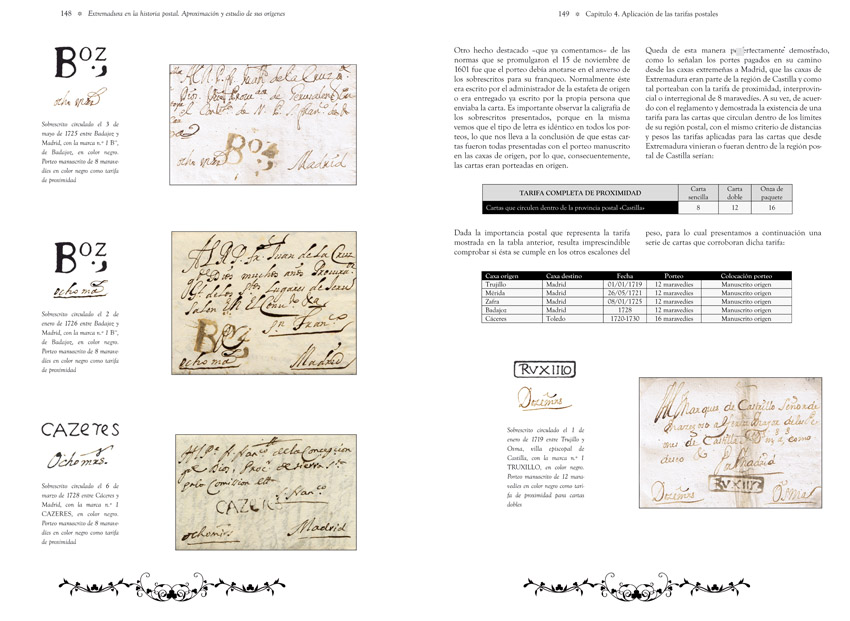 148 ❋ Extremadura en la historia postal. Aproximación y estudio de sus orígenes
Sobrescrito circulado el 3 de
mayo de 1725 entre Badajoz y
Madrid, con la marca n.º 1 Bº,
de Badajoz, en color negro.
Porteo manuscrito de 8 marave-
díes en color negro como tarifa
de proximidad
Madrid
ocho mrs
Sobrescrito circulado el 2 de
enero de 1726 entre Badajoz y
Madrid, con la marca n.º 1 Bº,
de Badajoz, en color negro.
Porteo manuscrito de 8 marave-
díes en color negro como tarifa
de proximidad
Madrid
CAZERES
Ochomrs.
Sobrescrito circulado el 6 de
marzo de 1728 entre Cáceres y
Madrid, con la marca n.º 1
CAZERES, en color negro.
Porteo manuscrito de 8 marave-
díes en color negro como tarifa
de proximidad
Madrid
149 ❋ Capítulo 4. Aplicación de las tarifas postales
Otro hecho destacado –que ya comentamos– de las
normas que se promulgaron el 15 de noviembre de
1601 fue que el porteo debía anotarse en el anverso de
los sobrescritos para su franqueo. Normalmente éste
era escrito por el administrador de la estafeta de origen
o era entregado ya escrito por la propia persona que
enviaba la carta. Es importante observar la caligrafía de
los sobrescritos presentados, porque en la misma
vemos que el tipo de letra es idéntico en todos los por-
teos, lo que nos lleva a la conclusión de que estas car-
tas fueron todas presentadas con el porteo manuscrito
en las caxas de origen, por lo que, consecuentemente,
las cartas eran porteadas en origen.
Queda de esta manera perfectamente demostrado,
como lo señalan los portes pagados en su camino
desde las caxas extremeñas a Madrid, que las caxas de
Extremadura eran parte de la región de Castilla y como
tal porteaban con la tarifa de proximidad, interprovin-
cial o interregional de 8 maravedíes. A su vez, de acuer-
do con el reglamento y demostrada la existencia de una
tarifa para las cartas que circulan dentro de los límites
de su región postal, con el mismo criterio de distancias
y pesos las tarifas aplicadas para las cartas que desde
Extremadura vinieran o fueran dentro de la región pos-
tal de Castilla serían:
TARIFA COMPLETA DE PROXIMIDAD Carta sencilla Carta doble Onza de paquete
Cartas que circulen dentro de la provincia postal «Castilla» 8 12 16
Dada la importancia postal que representa la tarifa
mostrada en la tabla anterior, resulta imprescindible
comprobar si ésta se cumple en los otros escalones del
peso, para lo cual presentamos a continuación una
serie de cartas que corroboran dicha tarifa:
Caxa origen Caxa destino Fecha Porteo Colocación porteo
Trujillo Madrid 01/01/1719 12 maravedíes Manuscrito origen
Mérida Madrid 26/05/1721 12 maravedíes Manuscrito origen
Zafra Madrid 08/01/1725 12 maravedíes Manuscrito origen
Badajoz Madrid 1728 12 maravedíes Manuscrito origen
Cáceres Toledo 1720-1730 16 maravedíes Manuscrito origen
Sobrescrito circulado el 1 de
enero de 1719 entre Trujillo y
Osma, villa episcopal de
Castilla, con la marca n.º 1
TRUXILLO, en color negro.
Porteo manuscrito de 12 mara-
vedíes en color negro como tari-
fa de proximidad para cartas
dobles